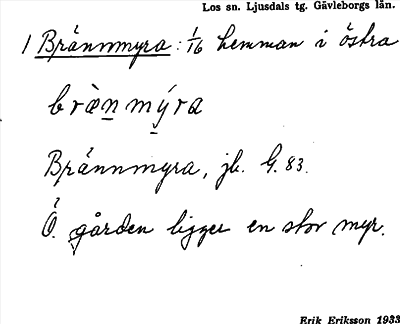 Los sn. Ljusdals tg. Gävleborgs län.
1 Brännmyra : 1/16 hemman i östra
bræ̀n mýra
Brännmyra, jb. G. 83.
Ö. gården ligger en stor myr.
Erik Eriksson 1933